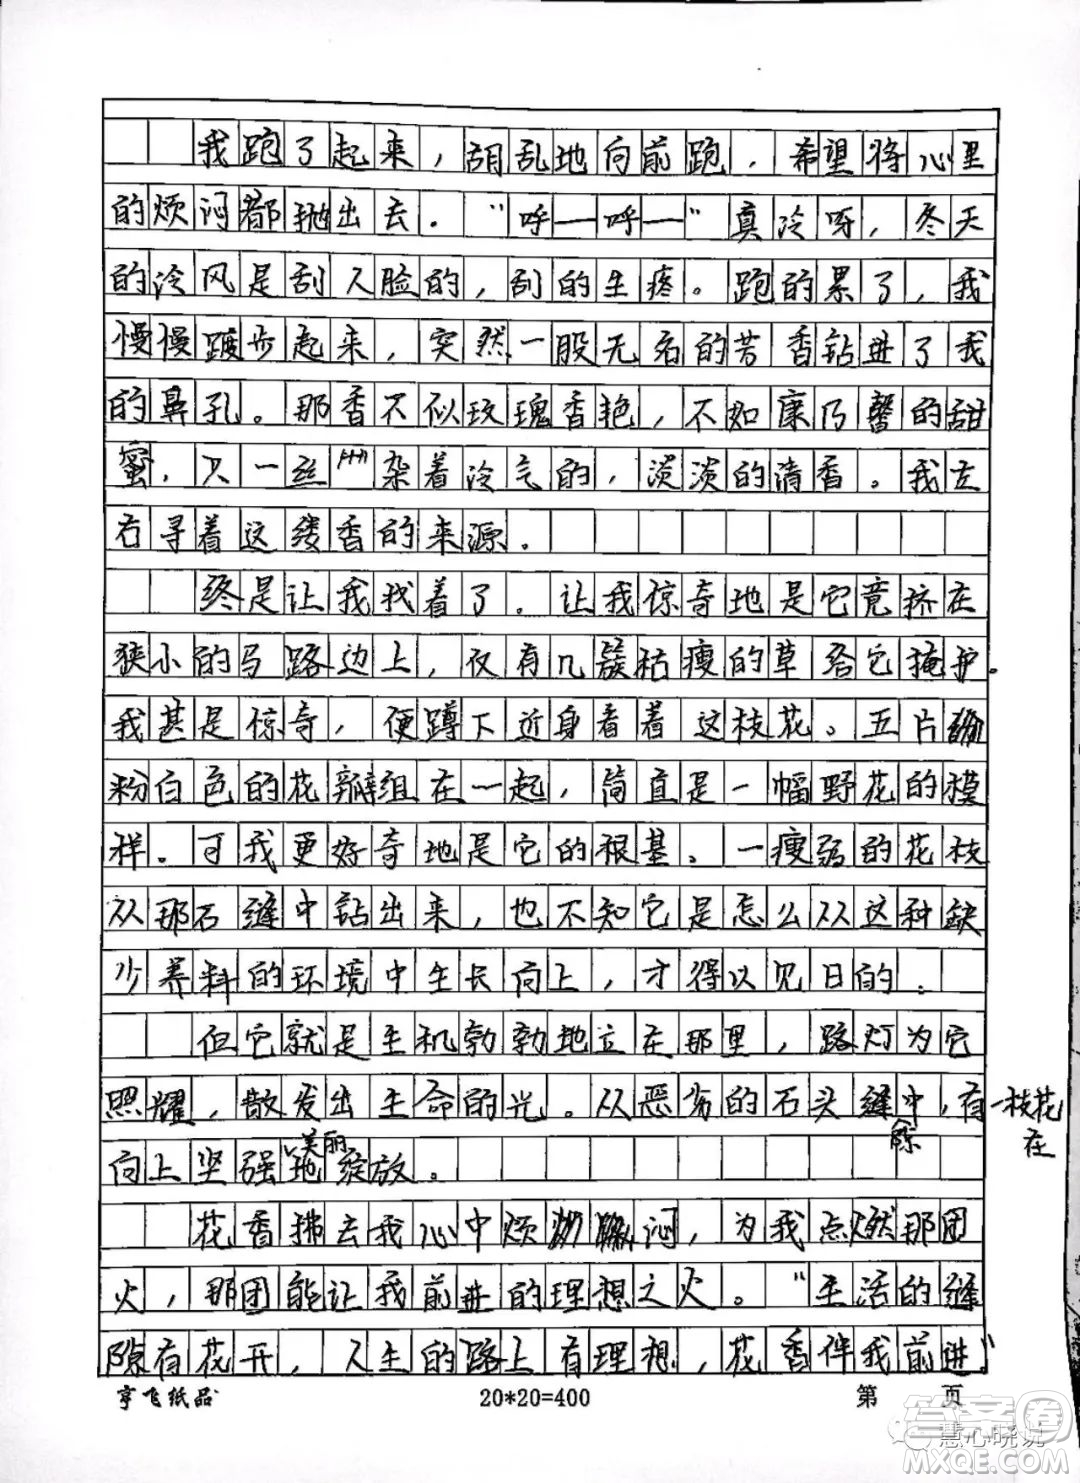 我跑了起来，胡乱地向前跑，希望将心里
的烦闷都抛出去。“呼——呼——”真冷呀，冬天
的冷风是刮人脸的，刮的生疼。跑的累了，我
慢慢踱步起来，突然一股无名的芳香钻进了我
的鼻孔。那香不似玫瑰香艳，不如康乃馨的甜
蜜，只一丝丝杂着冷气的，淡淡的清香。我左
右寻着这缕香的来源。
终是让我找着了。让我惊奇地是它竟挤在
狭小的马路边上，仅有几簇枯瘦的草给它掩护。
我甚是惊奇，便蹲下近身看着这枝花。五片
粉白色的花瓣组在一起，简直是一幅野花的模
样。可我更好奇地是它的根基。一瘦弱的花枝
从那石缝中钻出来，也不知它是怎么从这种缺
少养料的环境中生长向上，才得以见日的。
但它就是生机勃勃地立在那里，路灯为它
照耀，散发出生命的光。从恶劣的石头缝隙中，有一枝花在
向上坚强美丽地绽放。
花香拂去我心中烦闷，为我点燃那团
火，那团能让我前进的理想之火。“生活的缝
隙有花开，人生的路上有理想，花香伴我前进。”
亨飞纸品
20*20=400
第 页
答案圈
慧心晓说
MXQE.COM